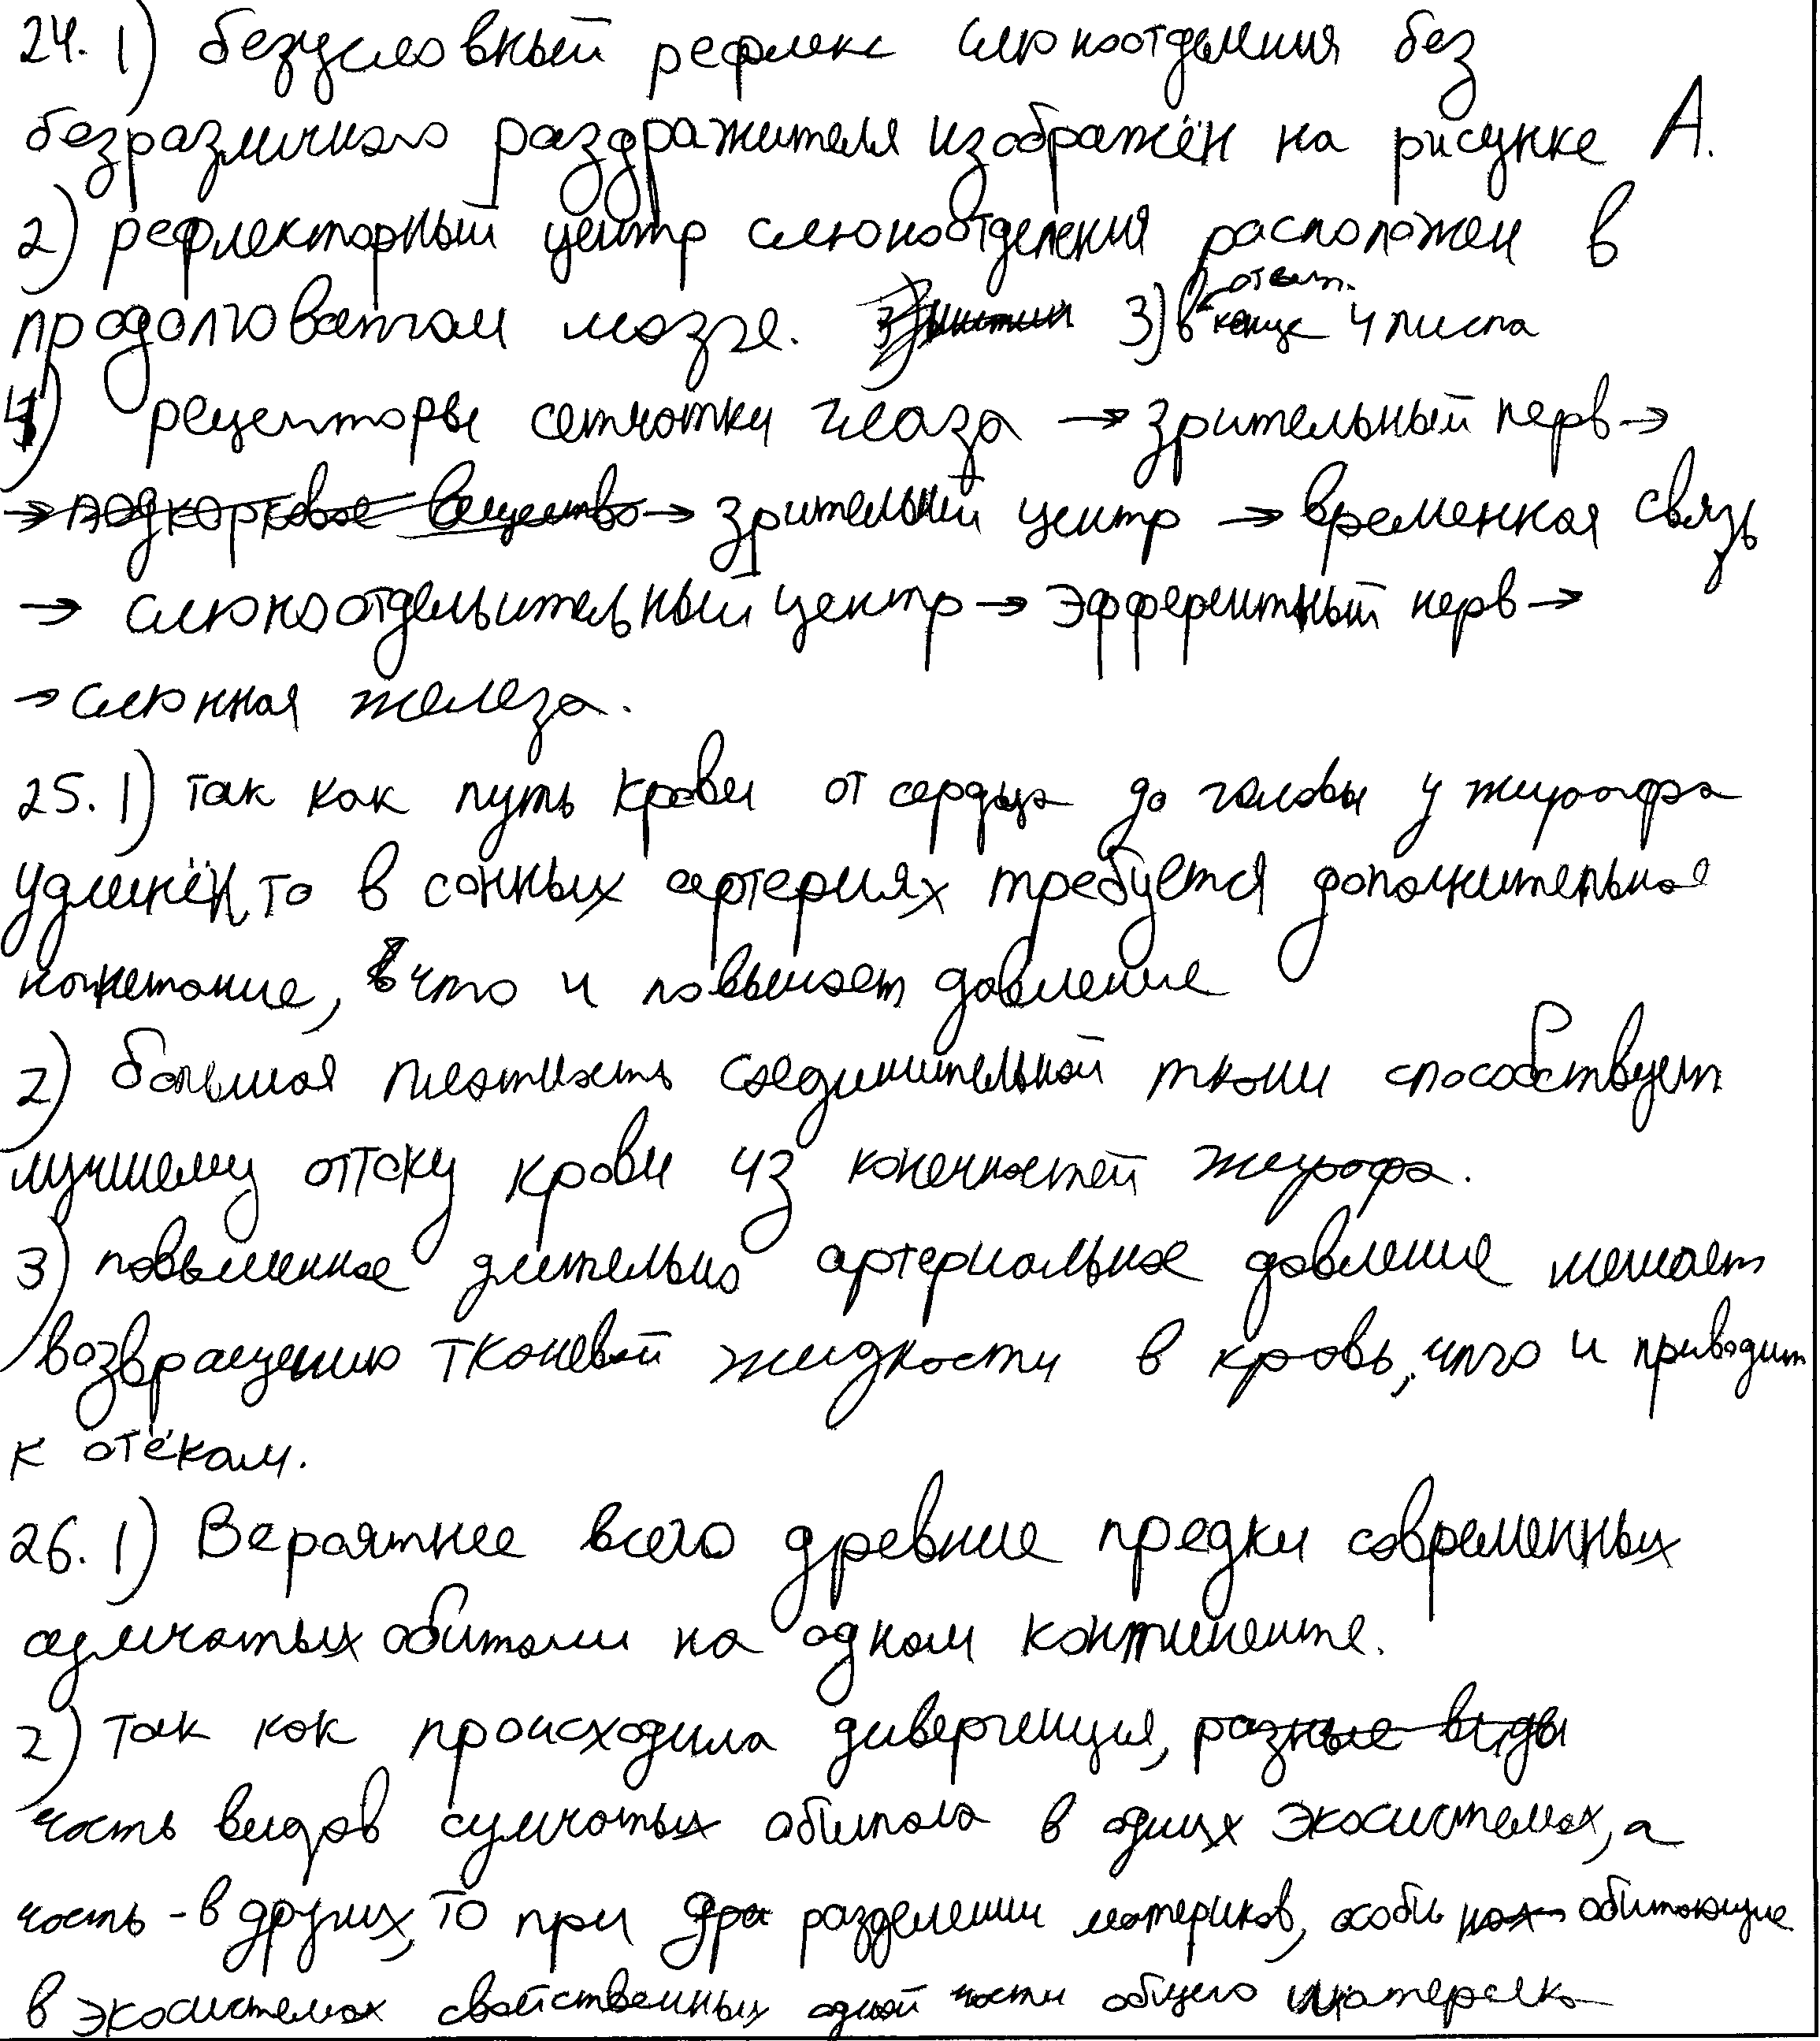 24. 1) безусловный рефлекс слюноотделения без
безразличного раздражителя изображён на рисунке А.
2) рефлекторный центр слюноотделения расположен в
продолговатом мозге. 3) ответ в конце 4 листа
4) рецепторы сетчатки глаза → зрительный нерв →
→ подкорковое вещество → зрительный центр → временная связь
→ слюноотделительный центр → эфферентный нерв →
→ слюнная железа.
25. 1) так как путь крови от сердца до головы у жирафа
удлинён, то в сонных артериях требуется дополнительное
нагнетание, что и повышает давление
2) большая плотность соединительной ткани способствует
лучшему оттоку крови из конечностей жирафа.
3) повышенное длительно артериальное давление мешает
возвращению тканевой жидкости в кровь, что и приводит
к отёкам.
26. 1) Вероятнее всего древние предки современных
сумчатых обитали на одном континенте.
2) так как происходила дивергенция, разные виды
часть видов сумчатых обитала в одних экосистемах, а
часть - в других, то при разделении материков, особи обитающие
в экосистемах свойственных одной части общего материка